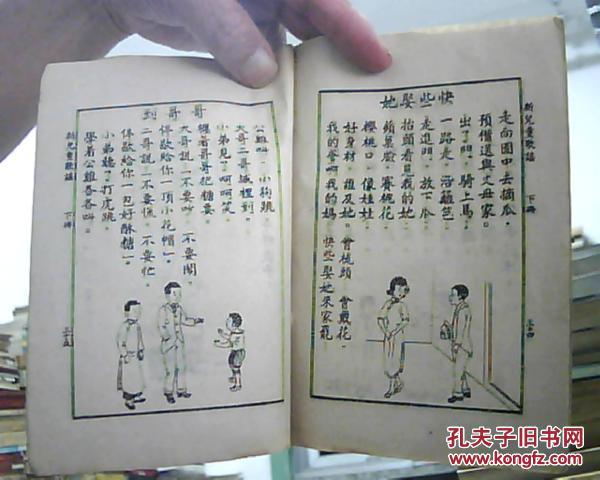 新兒童歌謠 下冊 三四
快些娶她
走向園中去摘瓜。
預備送與丈母家。
出了門。騎上馬。
一路走。沿籬笆。
走進門。放下瓜。
抬頭看見我的她。
蘋菓臉。賽桃花。
櫻桃口。像娃娃。
好身材。誰及她。會梳頭。會戴花。
我的爹啊我的媽。快些娶她來家罷。
哥哥到
公雞叫。小狗跳。
大哥二哥城裡到。
小弟見了呵呵笑。
纏着哥哥把糖要。
大哥說「不要鬧。
停歇給你一頂小花帽」。
二哥說「不要慌。不要忙。
停歇給你一包好酥糖」。
小弟聽了打虎跳。
學着公雞各各叫。
新兒童歌謠 下冊 三五
孔夫子旧书网
www.kongfz.com